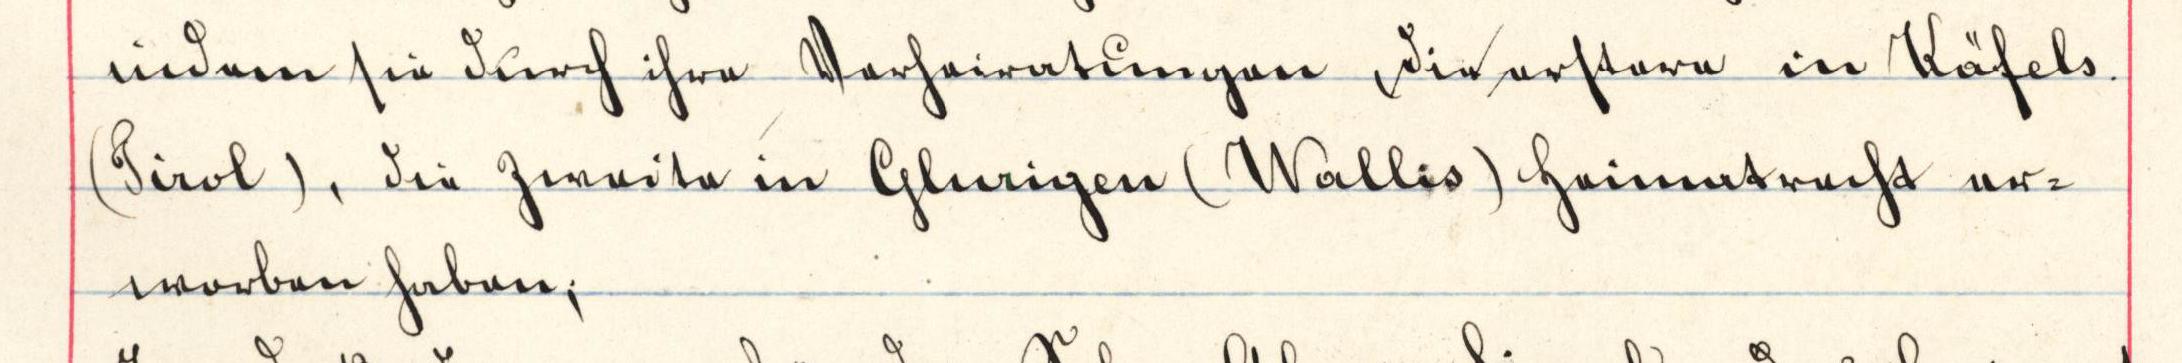 indem sie durch ihre Verheiratungen, die erstere in Käfels.
(Tirol), die zweite in Glurigen (Wallis) Heimatrecht er=
worben haben;